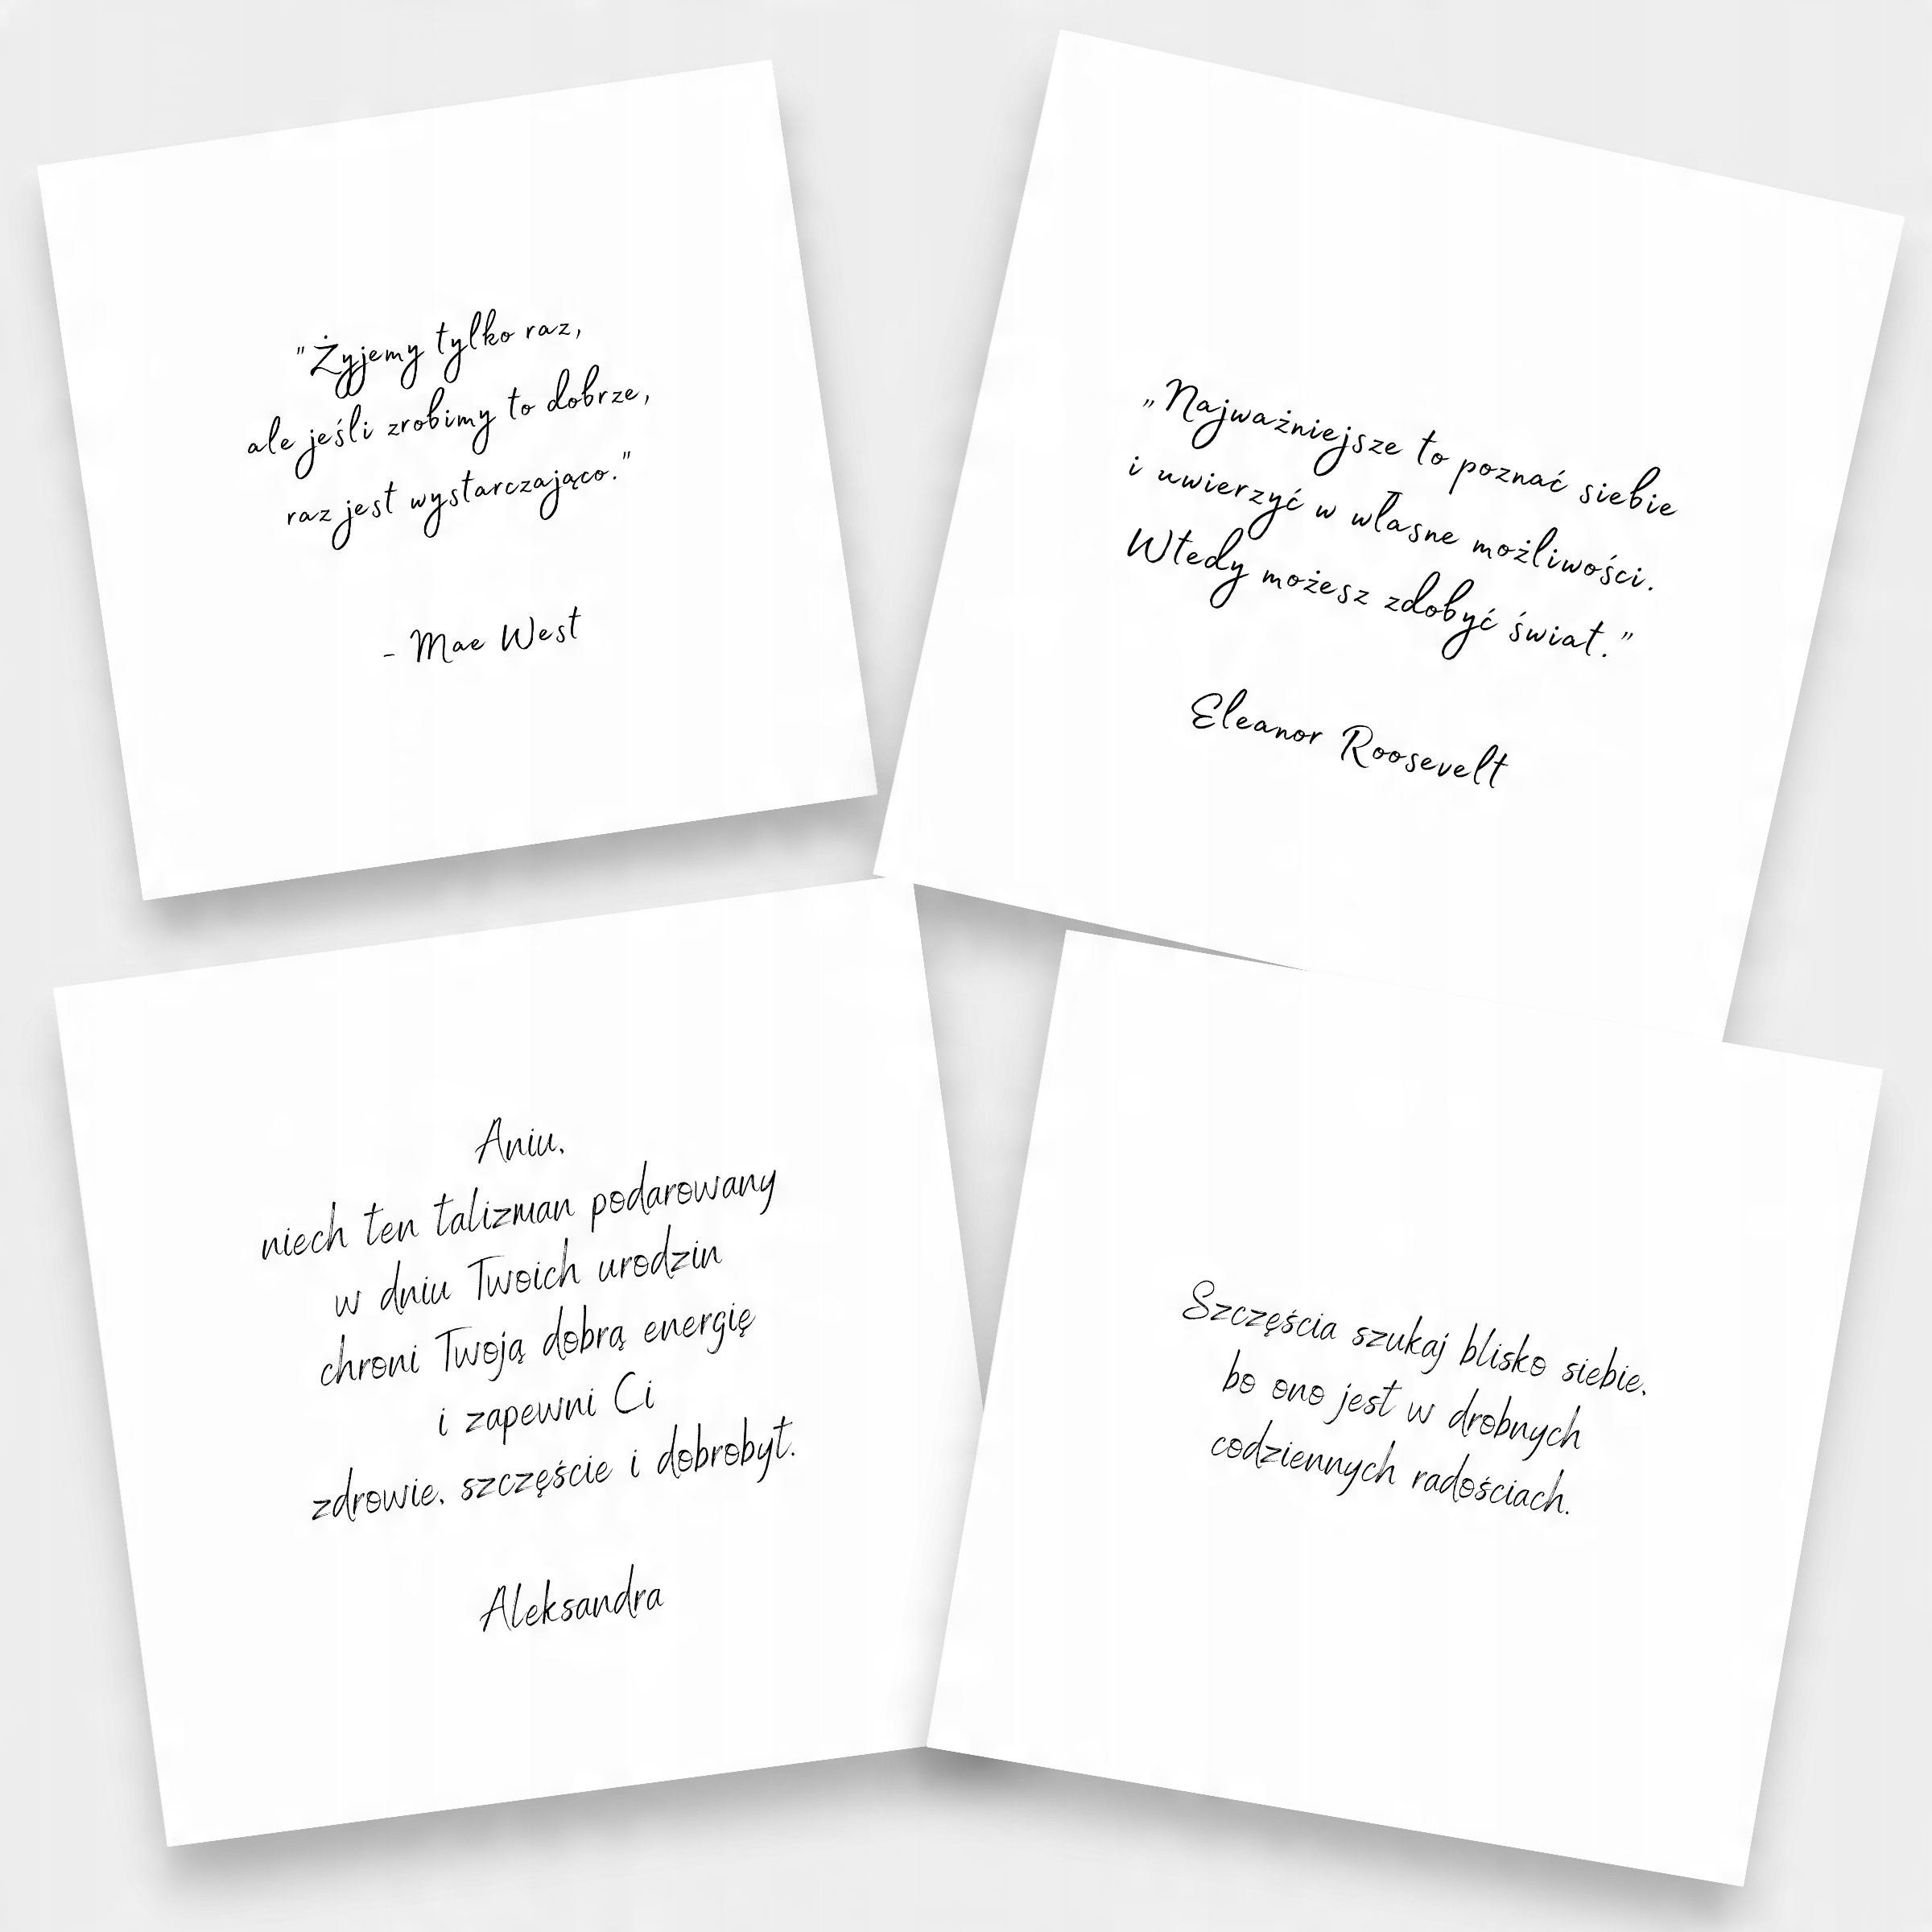 "Żyjemy tylko raz,
ale jeśli zrobimy to dobrze,
raz jest wystarczająco."
- Mae West
„Najważniejsze to poznać siebie
i uwierzyć w własne możliwości.
Wtedy możesz zdobyć świat.”
Eleanor Roosevelt
Aniu,
niech ten talizman podarowany
w dniu Twoich urodzin
chroni Twoją dobrą energię
i zapewni Ci
zdrowie, szczęście i dobrobyt.
Aleksandra
Szczęścia szukaj blisko siebie,
bo ono jest w drobnych
codziennych radościach.